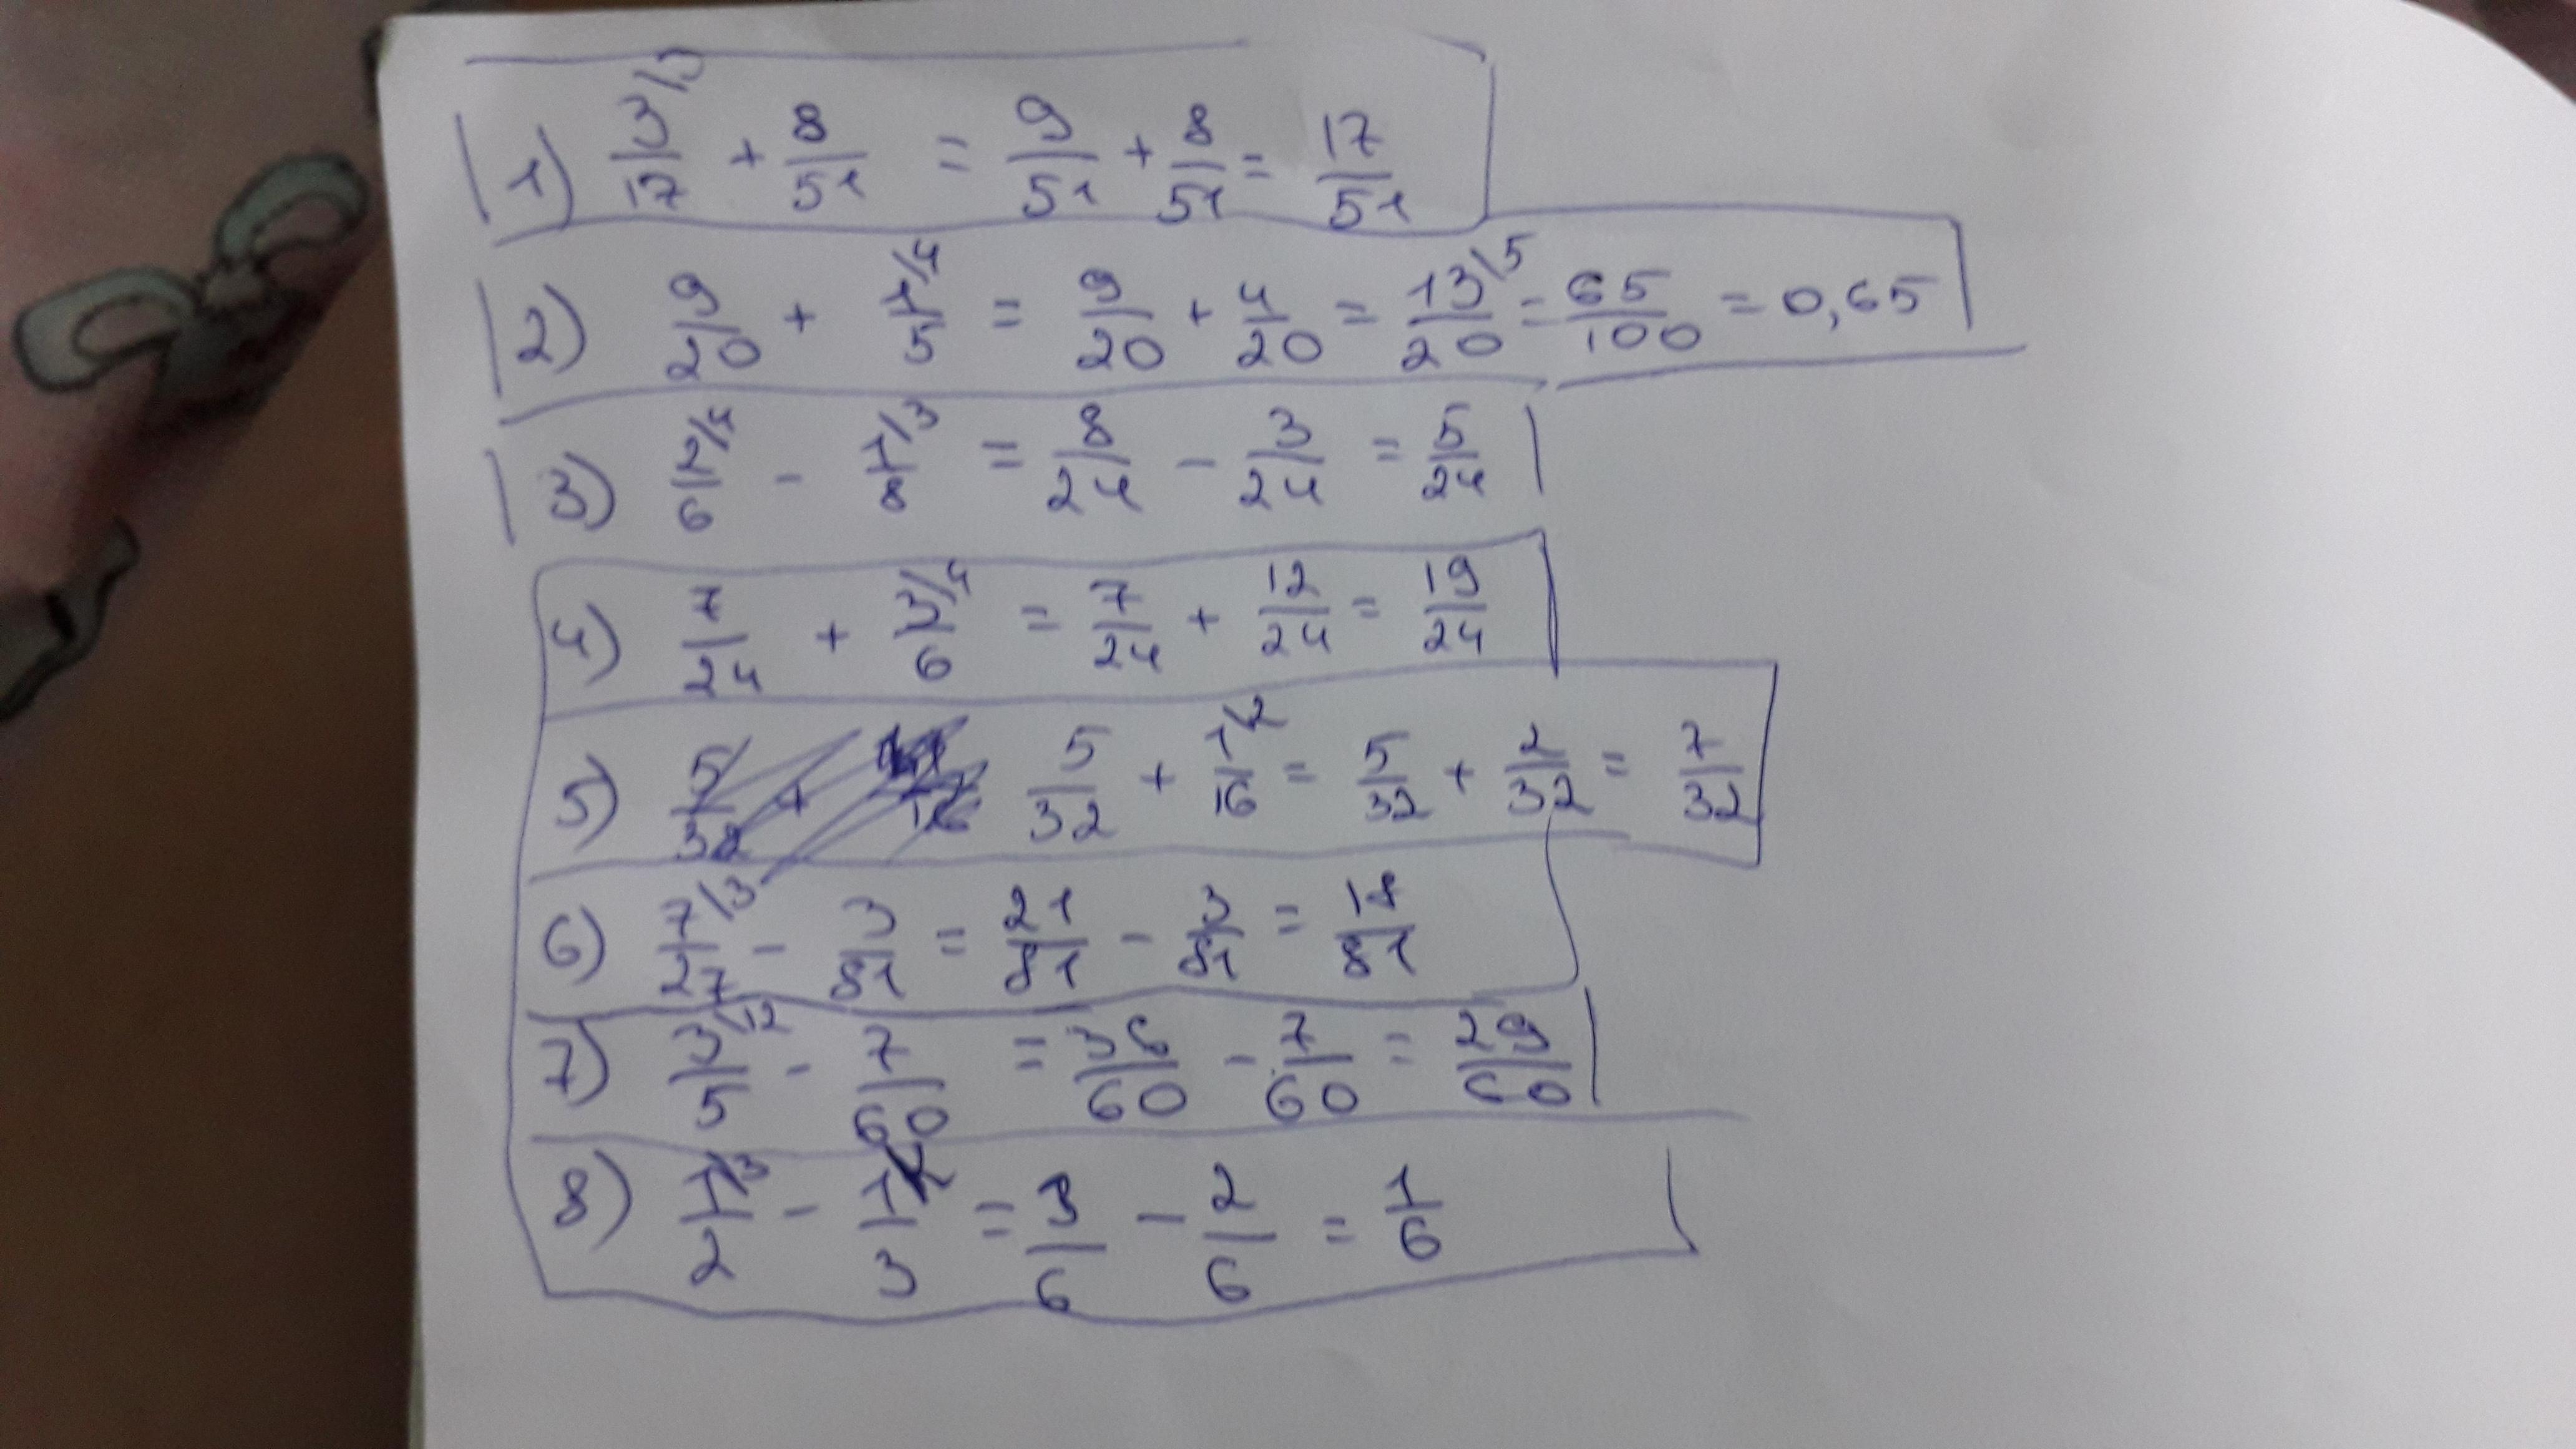 1) 3\3/17 + 8/51 = 9/51 + 8/51 = 17/51
2) 9/20 + 1\4/5 = 9/20 + 4/20 = 13\5/20 = 65/100 = 0,65
3) 2\4/6 - 1\3/8 = 8/24 - 3/24 = 5/24
4) 7/24 + 3\4/6 = 7/24 + 12/24 = 19/24
5) 5/32 + 1\2/16 = 5/32 + 2/32 = 7/32
6) 7\3/27 - 3/81 = 21/81 - 3/81 = 18/81
7) 3\12/5 - 7/60 = 36/60 - 7/60 = 29/60
8) 1\3/2 - 1\2/3 = 3/6 - 2/6 = 1/6